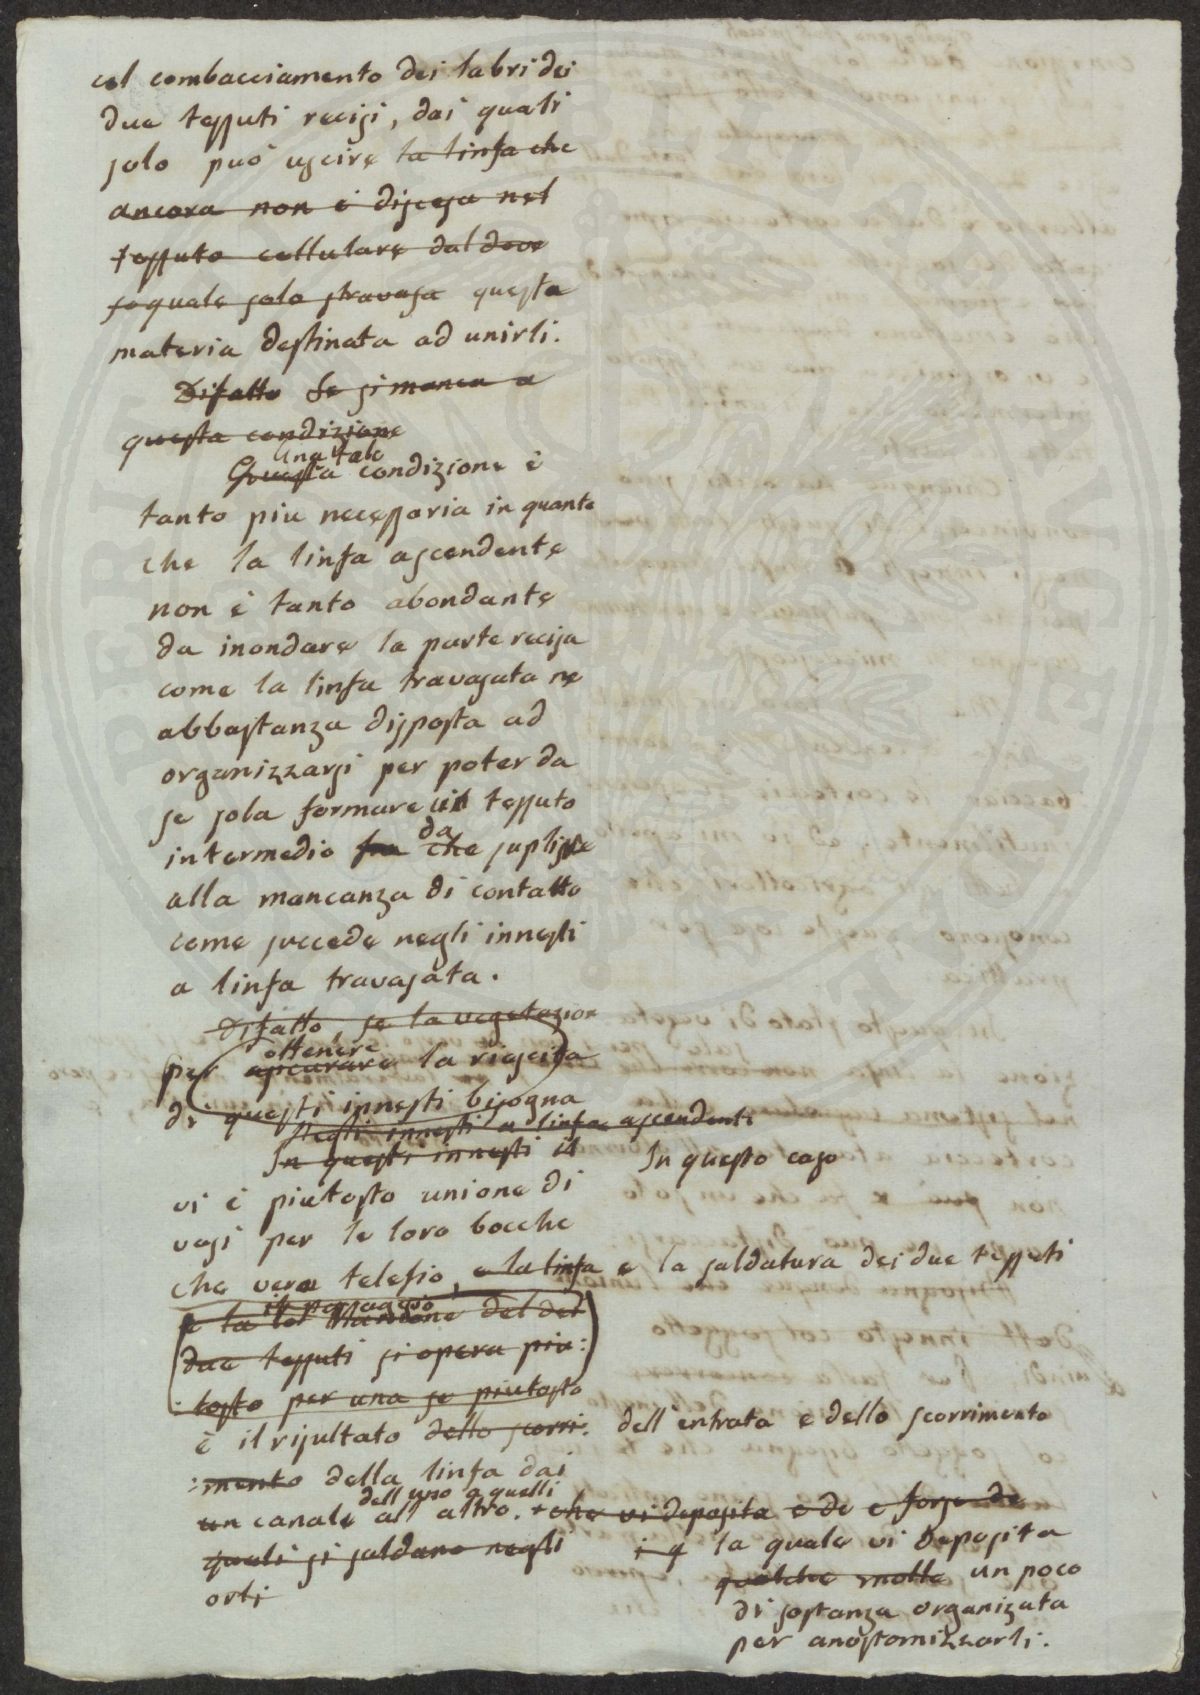 col combacciamento dei labri dei
due tessuti recisi, dai quali
solo può uscire la linfa che
ancora non è discesa nel
tessuto cellulare dal dove
quale solo stravasa questa
materia destinata ad unirli.
Difatto Se si manca a
questa condizione
Una tale
Questa condizione è
tanto piu necessaria in quanto
che la linfa ascendente
non è tanto abondante
da inondare la parte recisa
come la linfa travasata ne
abbastanza disposta ad
organizzarsi per poter da
se sola formare un tessuto
da
intermedio fra che suplisce
alla mancanza di contatto
come succede negli innesti
a linfa travasata.
Difatto, se la vegetazion
ottenere
per assicurare la riescita
di questi innesti bisogna
Negli innesti a linfa ascendente
In questi innesti il In questo caso
vi è piutosto unione di
vasi per le loro bocche
che vera telesio, e la linfa e la saldatura dei due tessuti
il passaggio
e la dei
due tessuti si opera piu:
:tosto per una se piutosto
è il risultato dello scorri: dell'entrata e dello scorrimento
:mento della linfa dai
dell'uno a quelli
un canale all'altro. + che vi deposita e de e forse de
quali si saldano negli la quale vi deposita
orli qualche molle un poco
di sostanza organizata
per anostomizzarli.